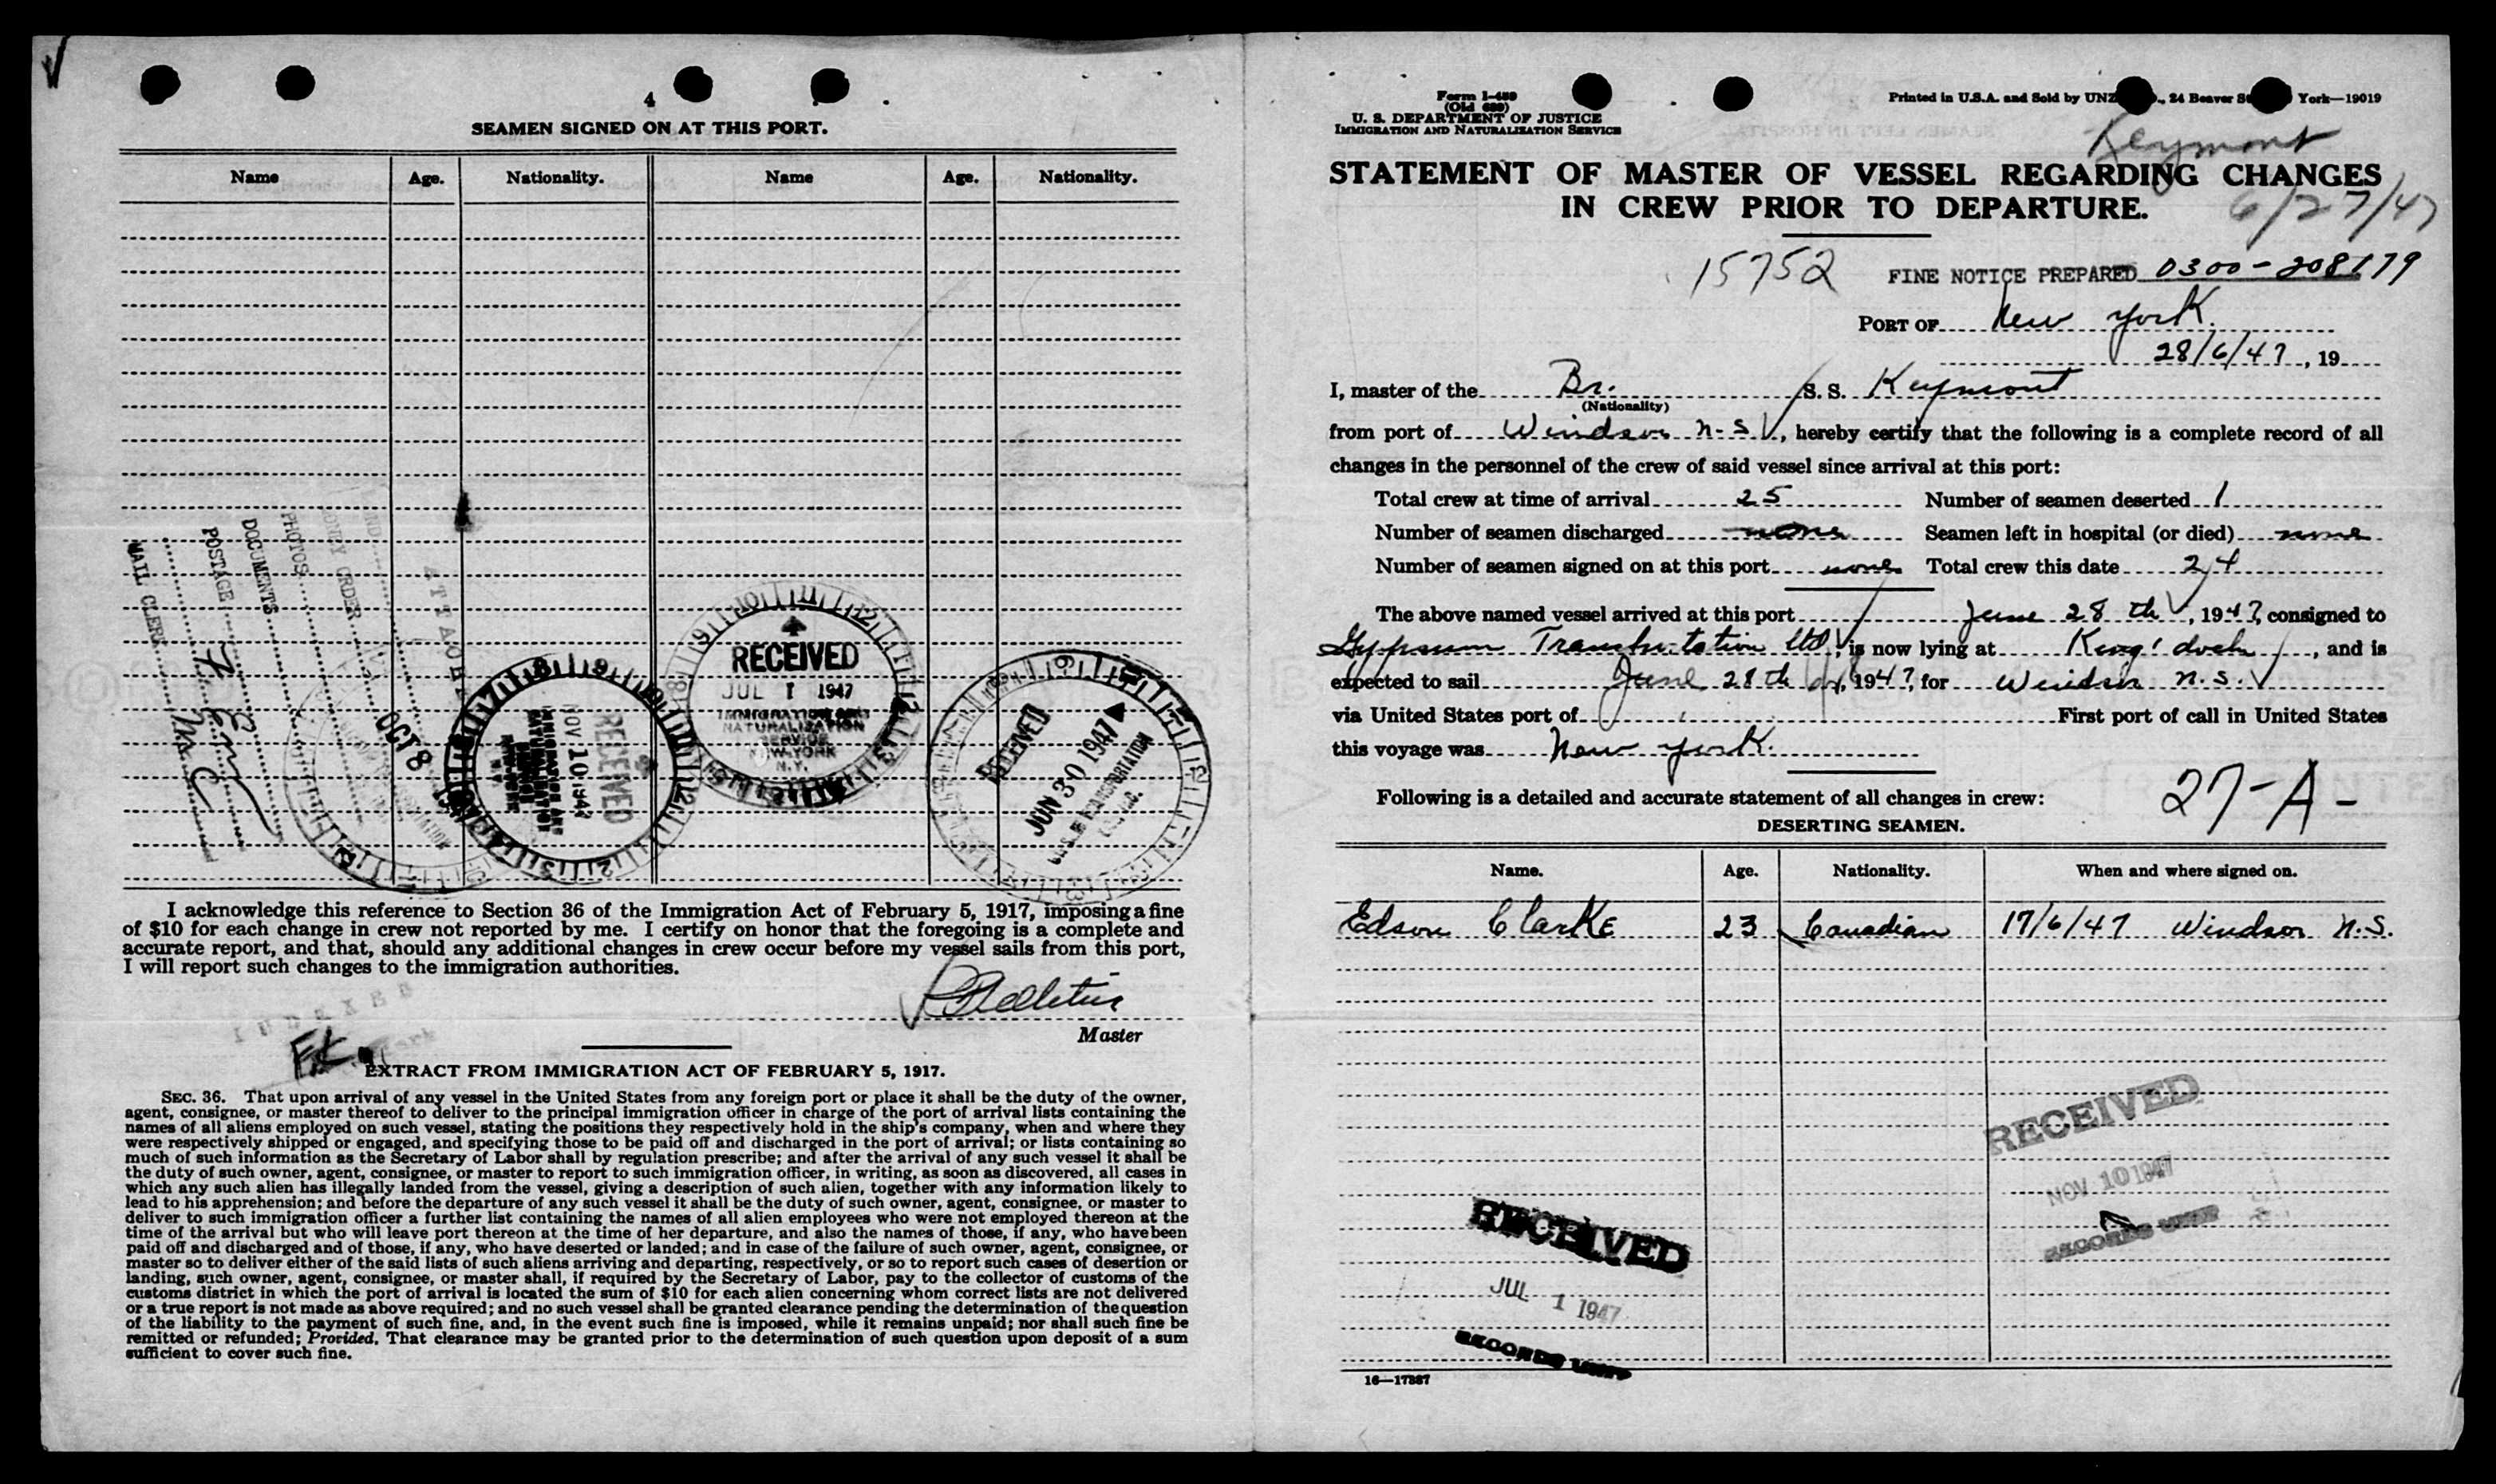 4
SEAMEN SIGNED ON AT THIS PORT.
Name Age. Nationality. Name Age. Nationality.
MAIL CLERK
POSTAGE
DOCUMENTS
PHOTOS
ORDER
OCT 8
RECEIVED
NOV 10 1947
IMMIGRATION AND
NATURALIZATION
SERVICE
NEW YORK
N.Y.
RECEIVED
JUL 1 1947
IMMIGRATION AND
NATURALIZATION
SERVICE
NEW YORK
N.Y.
RECEIVED
JUN 30 1947
I acknowledge this reference to Section 36 of the Immigration Act of February 5, 1917, imposing a fine
of $10 for each change in crew not reported by me. I certify on honor that the foregoing is a complete and
accurate report, and that, should any additional changes in crew occur before my vessel sails from this port,
I will report such changes to the immigration authorities.
INDEXED
Master
EXTRACT FROM IMMIGRATION ACT OF FEBRUARY 5, 1917.
SEC. 36. That upon arrival of any vessel in the United States from any foreign port or place it shall be the duty of the owner,
agent, consignee, or master thereof to deliver to the principal immigration officer in charge of the port of arrival lists containing the
names of all aliens employed on such vessel, stating the positions they respectively hold in the ship's company, when and where they
were respectively shipped or engaged, and specifying those to be paid off and discharged in the port of arrival; or lists containing so
much of such information as the Secretary of Labor shall by regulation prescribe; and after the arrival of any such vessel it shall be
the duty of such owner, agent, consignee, or master to report to such immigration officer, in writing, as soon as discovered, all cases in
which any such alien has illegally landed from the vessel, giving a description of such alien, together with any information likely to
lead to his apprehension; and before the departure of any such vessel it shall be the duty of such owner, agent, consignee, or master to
deliver to such immigration officer a further list containing the names of all alien employees who were not employed thereon at the
time of the arrival but who will leave port thereon at the time of her departure, and also the names of those, if any, who have been
paid off and discharged and of those, if any, who have deserted or landed; and in case of the failure of such owner, agent, consignee, or
master so to deliver either of the said lists of such aliens arriving and departing, respectively, or so to report such cases of desertion or
landing, such owner, agent, consignee, or master shall, if required by the Secretary of Labor, pay to the collector of customs of the
customs district in which the port of arrival is located the sum of $10 for each alien concerning whom correct lists are not delivered
or a true report is not made as above required; and no such vessel shall be granted clearance pending the determination of the question
of the liability to the payment of such fine, and, in the event such fine is imposed, while it remains unpaid; nor shall such fine be
remitted or refunded; Provided, That clearance may be granted prior to the determination of such question upon deposit of a sum
sufficient to cover such fine.
Form I-489
(Old 689)
U. S. DEPARTMENT OF JUSTICE
IMMIGRATION AND NATURALIZATION SERVICE
Printed in U.S.A. and Sold by UNZ 24 Beaver York—19019
Keymont
STATEMENT OF MASTER OF VESSEL REGARDING CHANGES
IN CREW PRIOR TO DEPARTURE.
6/27/47
15752 FINE NOTICE PREPARED 0300-208179
PORT OF New York.
28/6/47, 19
I, master of the Br. S. S. Keymont
(Nationality)
from port of Windsor N.S., hereby certify that the following is a complete record of all
changes in the personnel of the crew of said vessel since arrival at this port:
Total crew at time of arrival 25 Number of seamen deserted 1
Number of seamen discharged none Seamen left in hospital (or died) none
Number of seamen signed on at this port none Total crew this date 24
The above named vessel arrived at this port June 28th, 1947, consigned to
Gypsum Transportation Ltd, is now lying at King's dock, and is
expected to sail June 28th, 1947, for Windsor N.S.
via United States port of First port of call in United States
this voyage was New York.
Following is a detailed and accurate statement of all changes in crew:
27-A-
DESERTING SEAMEN.
Name. Age. Nationality. When and where signed on.
Edson Clarke 23 Canadian 17/6/47 Windsor N.S.
RECEIVED
NOV 10 1947
RECORDS UNIT
RECEIVED
JUL 1 1947
RECORDS UNIT
16—17887